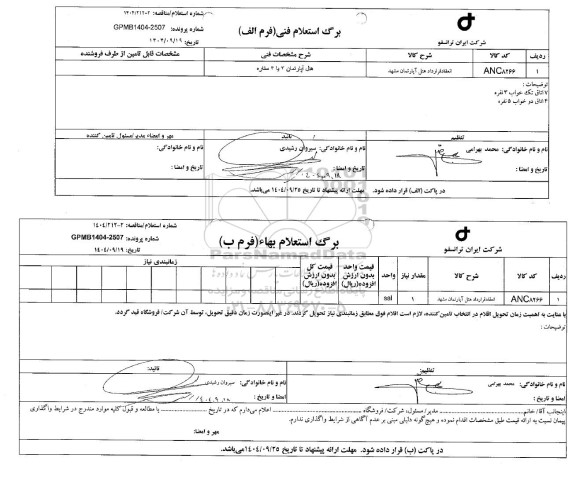 شماره استعلام/مناقصه: ۱۴۰۴۲۱۲۰۲
برگ استعلام فنی(فرم الف)
شماره پرونده: GPMB1404-2507
تاریخ: ۱۴۰۴/۰۹/۱۹
شرکت ایران ترانسفو
ردیف کد کالا شرح کالا شرح مشخصات فنی مشخصات قابل تامین از طرف فروشنده
۱ ANC۸۲۶۶ انعقادقرارداد هتل آپارتمان مشهد هتل آپارتمان ۲ یا ۳ ستاره
توضیحات :
۷ اتاق تک خواب ۳ نفره
۴ اتاق دو خواب ۵ نفره
تنظیم تائید مهر و امضاء مدیر/مسئول تامین کننده
نام و نام خانوادگی: محمد بهرامی نام و نام خانوادگی: سیروان رشیدی نام و نام خانوادگی:
تاریخ و امضا : تاریخ و امضا : تاریخ و امضا :
در پاکت (الف) قرار داده شود. مهلت ارائه پیشنهاد تا تاریخ ۱۴۰۴/۰۹/۲۵ می‌باشد.
شماره استعلام/مناقصه: ۱۴۰۴۲۱۲۰۲
برگ استعلام بهاء(فرم ب)
شماره پرونده: GPMB1404-2507
تاریخ: ۱۴۰۴/۰۹/۱۹
شرکت ایران ترانسفو
ردیف کد کالا شرح کالا مقدار نیاز واحد قیمت واحد بدون ارزش افزوده(ریال) قیمت کل بدون ارزش افزوده(ریال) زمانبندی نیاز
۱ ANC۸۲۶۶ انعقادقرارداد هتل آپارتمان مشهد ۱ sal
ParsNamadData
با عنایت به اهمیت زمان تحویل اقلام در انتخاب تامین‌کننده، لازم است اقلام فوق مطابق زمانبندی نیاز تحویل گردند. در غیر اینصورت زمان دقیق تحویل، توسط آن شرکت/ فروشگاه قید گردد.
توضیحات :
تنظیم: تائید:
نام و نام خانوادگی: محمد بهرامی نام و نام خانوادگی: سیروان رشیدی
تاریخ و امضا : تاریخ و امضا :
اینجانب آقا/ خانم مدیر/ مسئول، شرکت/ فروشگاه اعلام می‌دارم که در تاریخ با مطالعه و قبول کلیه موارد مندرج در شرایط واگذاری
پیمان نسبت به ارائه قیمت طبق مشخصات اقدام نموده و هیچ‌گونه دلیلی مبنی بر عدم آگاهی از شرایط واگذاری ندارم.
مهر و امضا:
در پاکت (ب) قرار داده شود. مهلت ارائه پیشنهاد تا تاریخ ۱۴۰۴/۰۹/۲۵ می‌باشد.